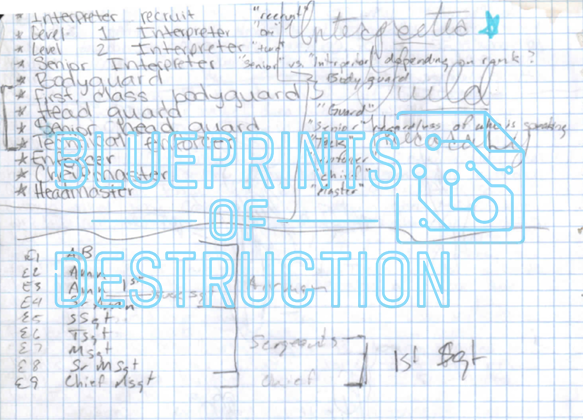 * Interpreter recruit "recruit"
* Level 1 Interpreter "on
* Level 2 Interpreter "two"
* Senior Interpreter "senior" vs. "Interpreter" depending on rank?
* Bodyguard Bodyguard
* First class bodyguard
* Head guard "Guard"
* Senior head guard "Senior" regardless of who is speaking
* enforcer
* Enforcer
* Chief master "chief"
* Headmaster "Master"
Interpreter
Guild
BLUEPRINTS
OF
DESTRUCTION
E1 AB
E2 Amn
E3 Amn 1st
E4 Sr Amn
E5 SSgt
E6 TSgt
E7 MSgt
E8 Sr MSgt
E9 Chief MSgt
Airman
Sergeants
Chief
1st Sgt